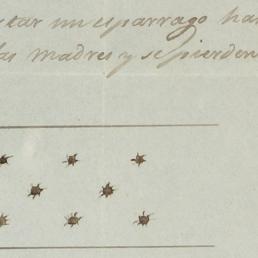 tar un esparrago has
las madres y se pierden